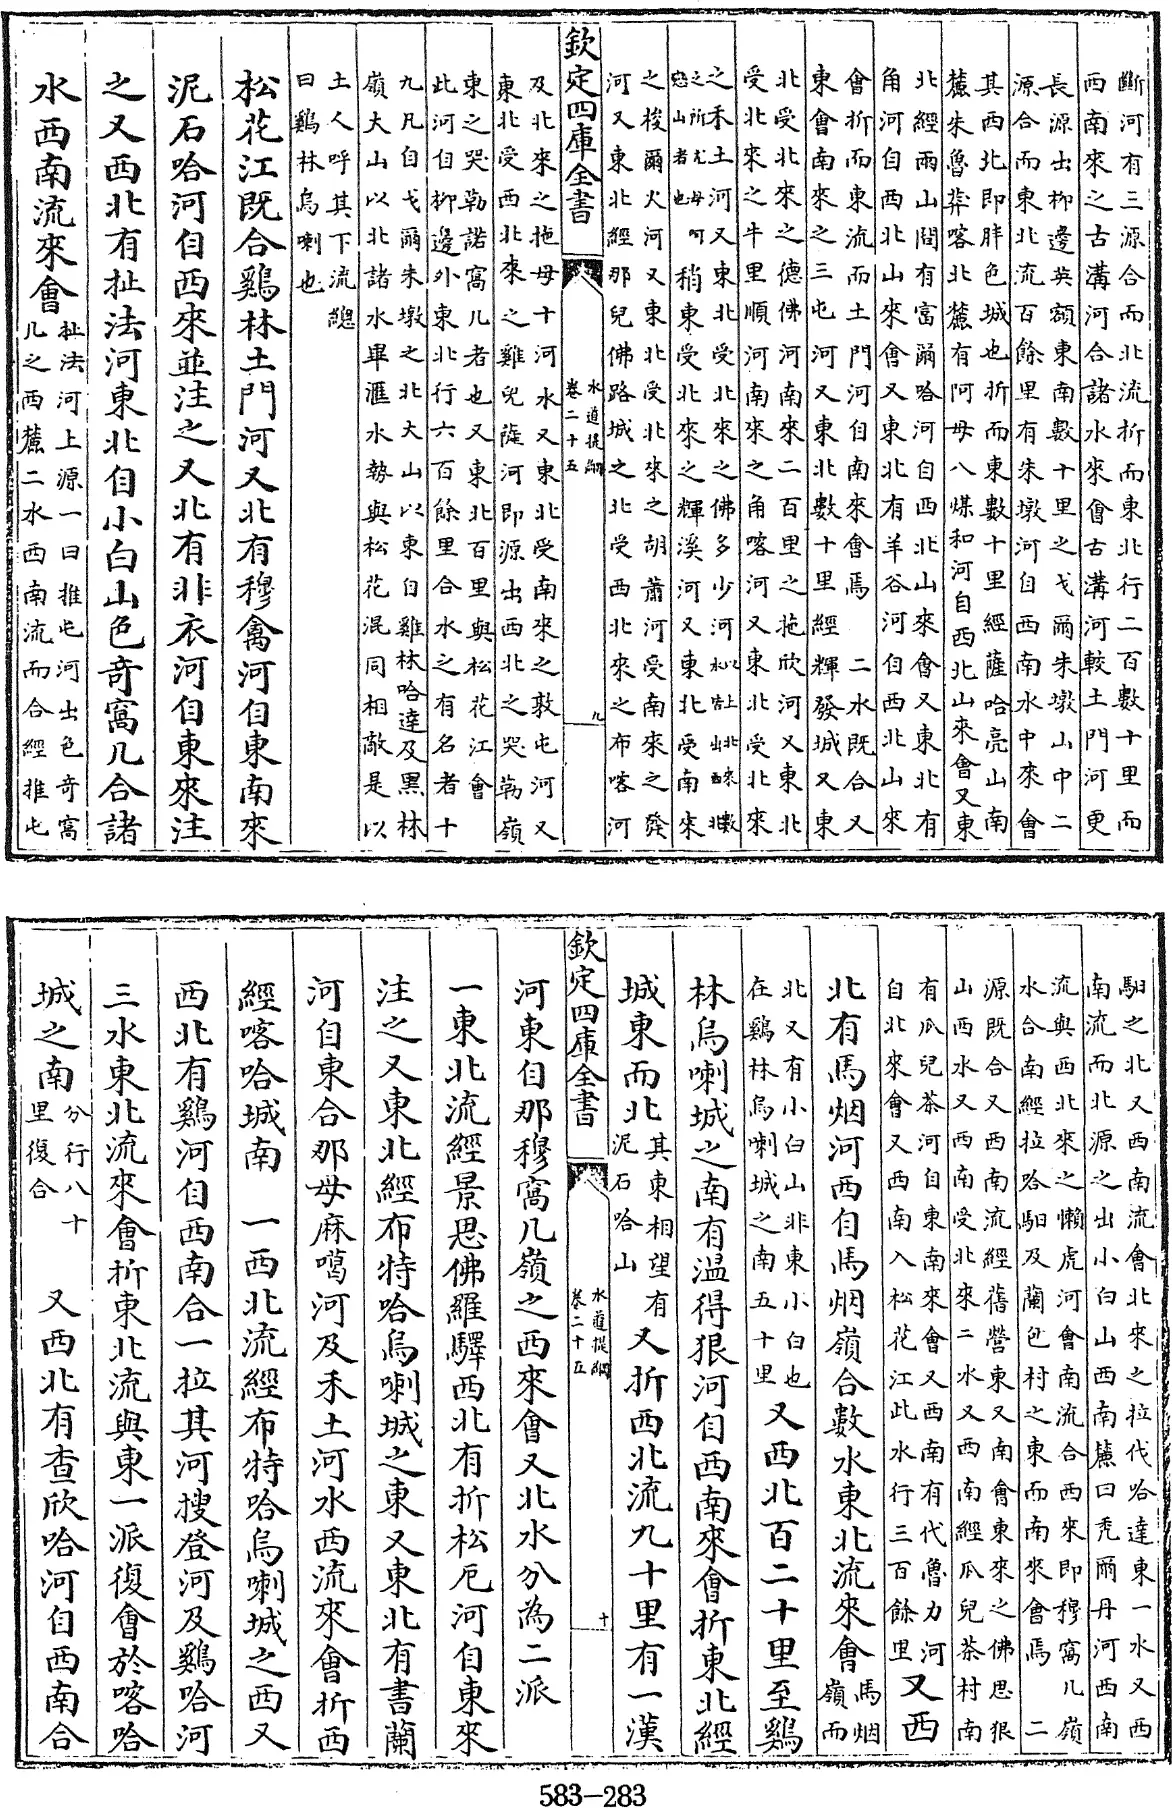 斷河有三源合而北流折而東北行二百數十里而
西南來之古溝河合諸水來會古溝河較土門河更
長源出柳邊英額東南數十里之戈爾朱墩山中二
源合而東北流百餘里有朱墩河自西南水中來會
其西北即胖色城也折而東數十里經薩哈亮山南
麓朱魯葬喀北麓有阿母八煤和河自西北山來會又東
北經兩山間有富爾哈河自西北山來會又東北有
角河自西北山來會又東北有羊谷河自西北山來
會折而東流而土門河自南來會焉 二水既合又
東會南來之三屯河又東北數十里經輝發城又東
北受北來之德佛河南來二百里之拖欣河又東北
受北來之牛里順河南來之角喀河又東北受北來
之禾土河又東北受北來之佛多少河
稍東受北來之輝溪河又東北受南來
之梭爾火河又東北受北來之胡蕭河受南來之發
河又東北經那兒佛路城之北受西北來之布喀河
欽定四庫全書 水道提綱 卷二十五 九
及北來之拖母十河水又東北受南來之敦屯河又
東北受西北來之雞兒薩河即源出西北之哭勒嶺
東之哭勒諾窩几者也又東北百里與松花江會
此河自柳邊外東北行六百餘里合水之有名者十
九凡自戈爾朱墩之北大山以東自雞林哈達及黑林
嶺大山以北諸水畢滙水勢與松花混同相敵是以
土人呼其下流總
曰鷄林烏喇也
松花江既合鷄林土門河又北有穆禽河自東南來
泥石哈河自西來並注之又北有非衣河自東來注
之又西北有扯法河東北自小白山色奇窩几合諸
水西南流來會
扯法河上源一曰推屯河出色奇窩
几之西麓二水西南流而合經推屯
馹之北又西南流會北來之拉代哈達東一水又西
南流而北源之出小白山西南麓曰禿爾丹河西南
流與西北來之懶虎河會南流合西來即穆窩几嶺
水合南經拉哈馹及蘭包村之東而南來會焉 二
源既合又西南流經舊營東又南會東來之佛思狠
山西水又西南受北來二水又西南經瓜兒茶村南
有瓜兒茶河自東南來會又西南有代魯力河
自北來會又西南入松花江此水行三百餘里 又西
北有馬烟河西自馬烟嶺合數水東北流來會
馬烟
嶺而
北又有小白山非東小白也
在鷄林烏喇城之南五十里
又西北百二十里至鷄
林烏喇城之南有温得狠河自西南來會折東北經
城東而北
其東相望有
泥石哈山
又折西北流九十里有一漢
欽定四庫全書 水道提綱 卷二十五 十
河東自那穆窩几嶺之西來會又北水分為二派
一東北流經景思佛羅驛西北有折松厄河自東來
注之又東北經布特哈烏喇城之東又東北有書蘭
河自東合那母麻噶河及禾土河水西流來會折西
經喀哈城南 一西北流經布特哈烏喇城之西又
西北有鷄河自西南合一拉其河搜登河及鷄哈河
三水東北流來會折東北流與東一派復會於喀哈
城之南
分行八十
里復合
又西北有查欣哈河自西南合
583-283